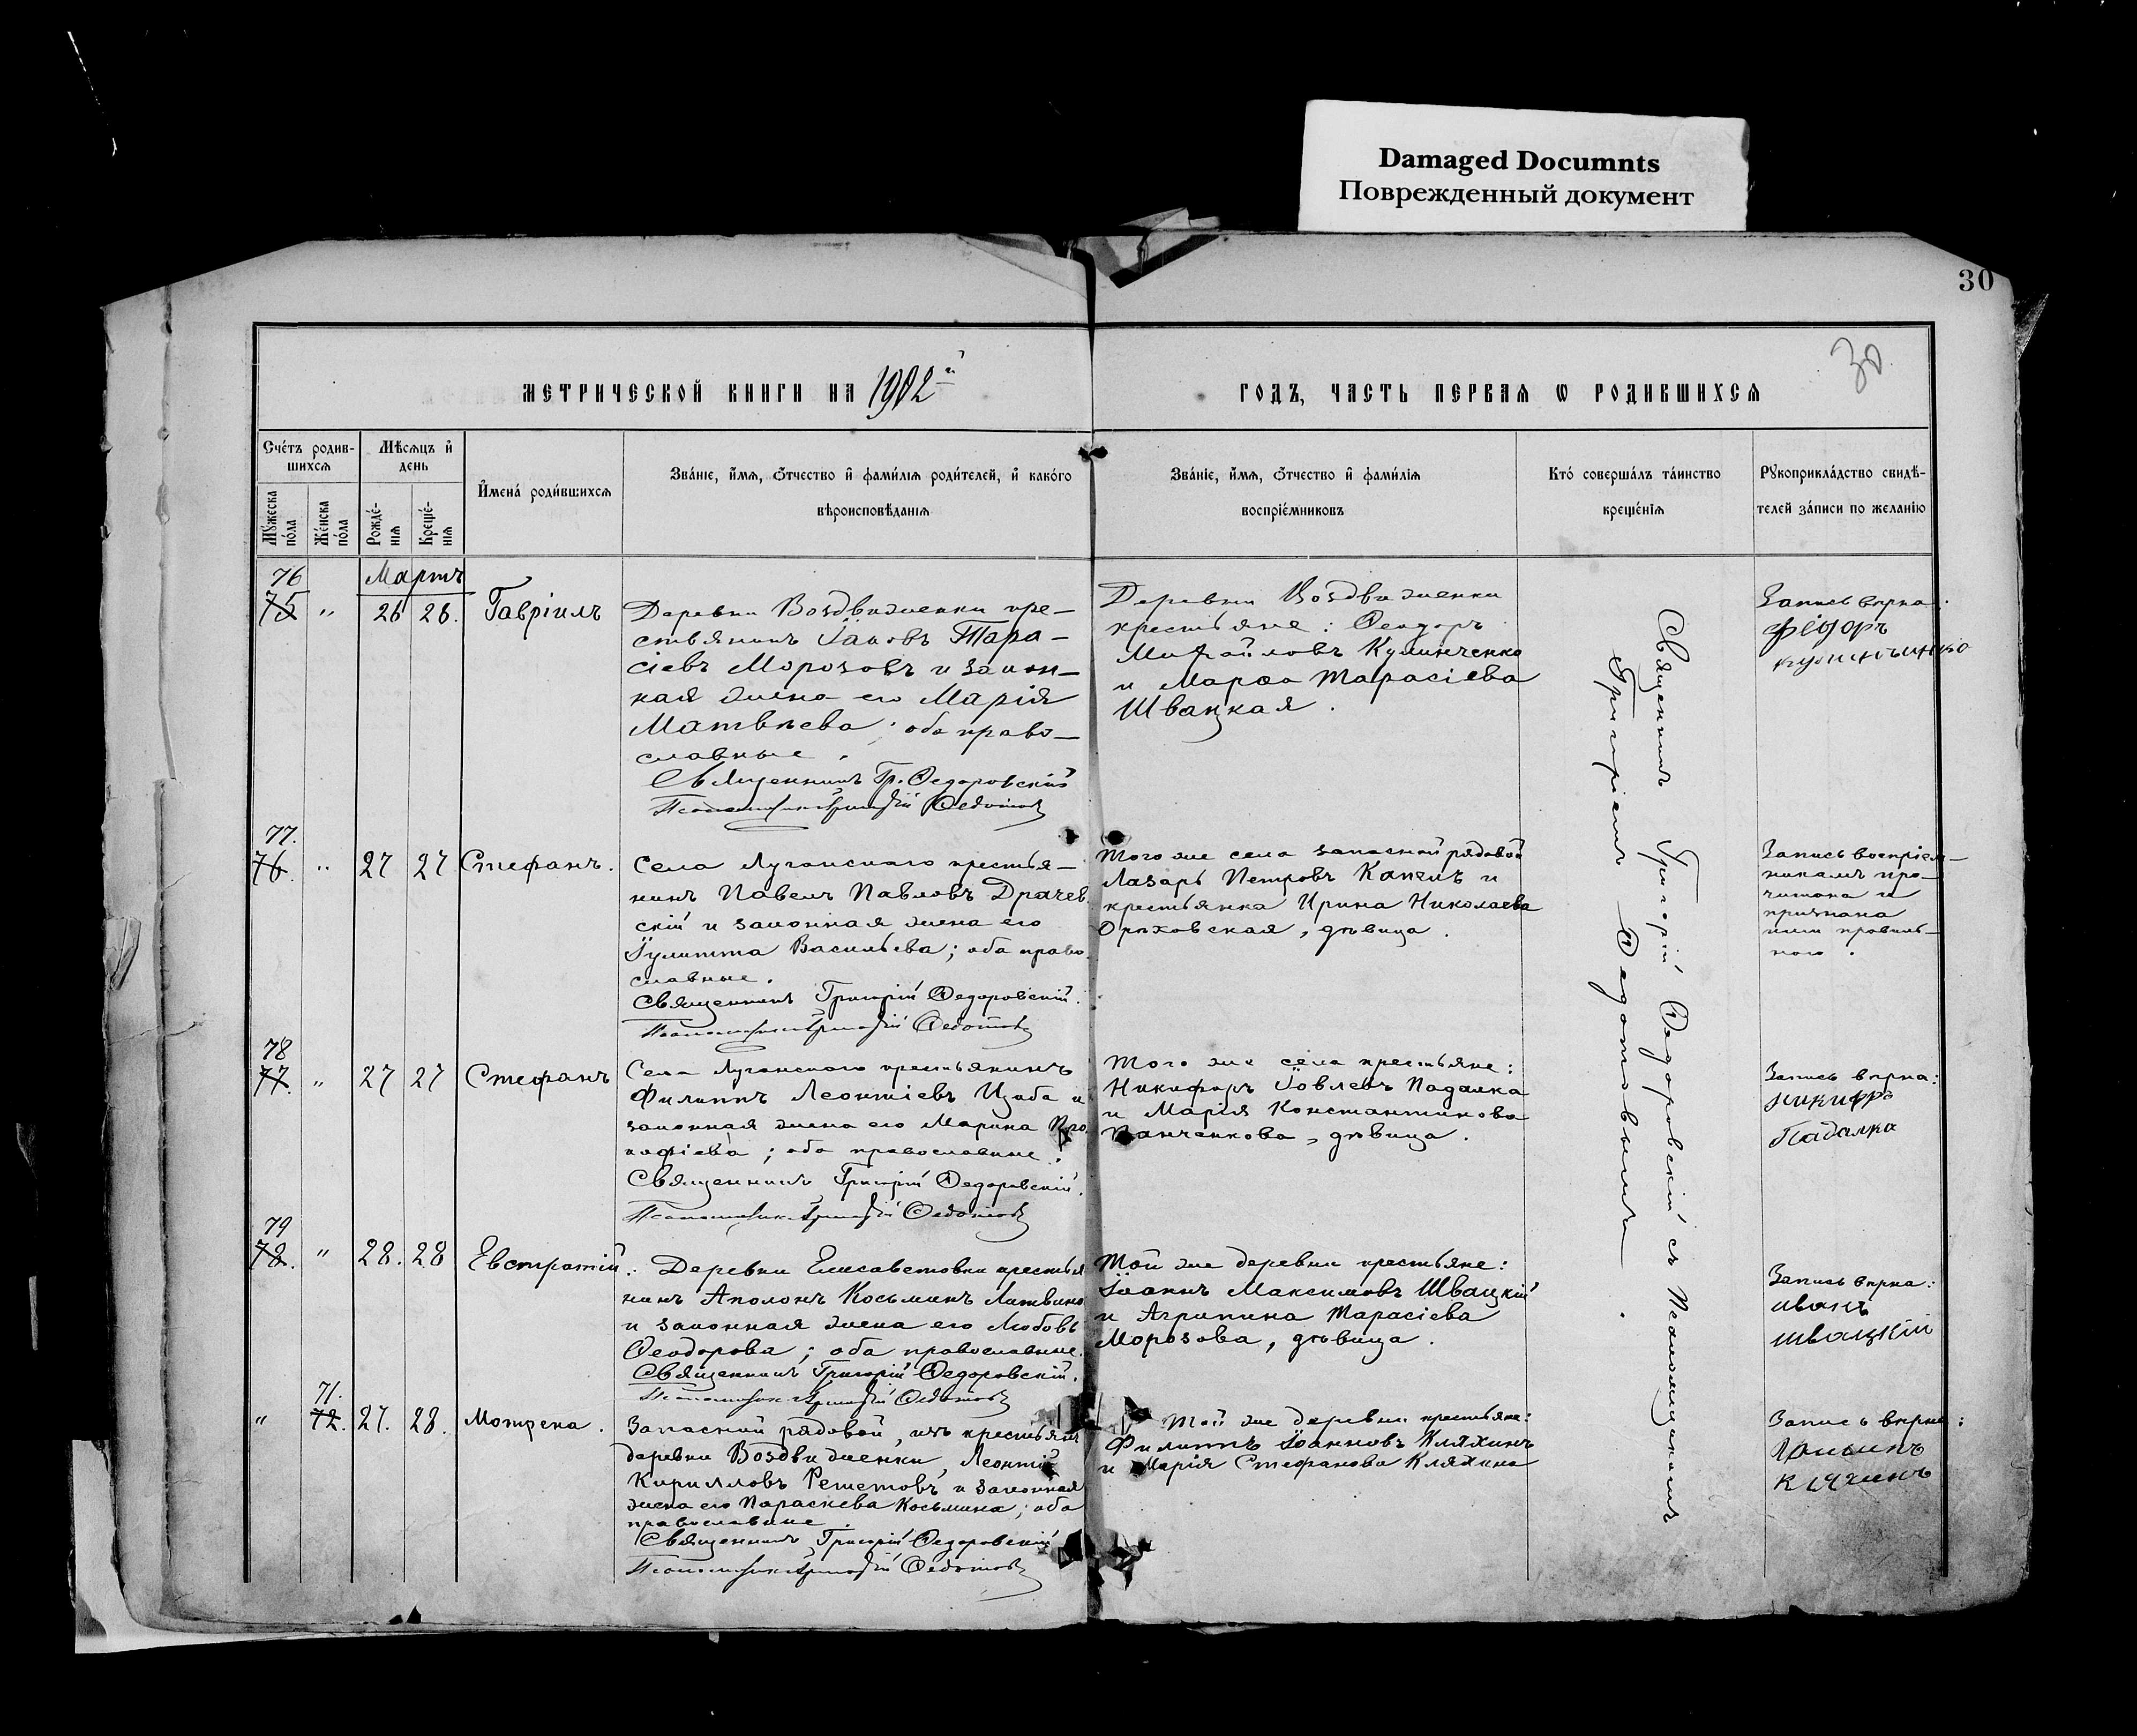 Damaged Documnts
Поврежденный документ
30
30.
МЕТРИЧЕСКОЙ КНИГИ НА 1902й
ГОДЪ, ЧАСТЬ ПЕРВАЯ Ѡ РОДИВШИХСЯ
Счетъ родив-
шихся
Мѣсяцъ и
день
Имена родившихся
Званіе, имя, отчество и фамилія родителей, и какого
вѣроисповѣданія
Званіе, имя, отчество и фамилія
воспріемниковъ
Кто совершалъ таинство
крещенія
Рукоприкладство свидѣ-
телей записи по желанію
Мужеска
пола
Женска
пола
Рожде-
нія
Креще-
нія
Мартъ
76
75 " 26 26. Гавріилъ
Деревни Воздвиженки кре-
стьянинъ Іаковъ Тара-
сіевъ Морозовъ и закон-
ная жена его Марія
Матвѣева; оба право-
славные.
Священникъ Гр. Ѳедоровскій
Псаломщикъ Григорій Ѳедотовъ
Деревни Воздвиженки
крестьяне: Ѳеодоръ
Михайловъ Кулинченко
и Марѳа Тарасіева
Швацкая.
Запись вѣрна:
Федоръ
77.
76. " 27 27 Стефанъ.
Села Луганскаго крестья-
нинъ Павелъ Павловъ Драчев
скій и законная жена его
Іулитта Васильева; оба право
славные.
Священникъ Григорій Ѳедоровскій.
Псаломщикъ Григорій Ѳедотовъ
Того же села запасной рядовой
Лазарь Петровъ Капелъ и
крестьянка Ирина Николаева
Орѣховская, дѣвица.
Запись воспріем-
никамъ про-
читана и
признана
ими правиль-
ною.
78
77. " 27 27 Стефанъ
Села Луганскаго крестьянинъ
Филиппъ Леонтіевъ Цыба и
законная жена его Марина Про
кофіева; оба православные.
Священникъ Григорій Ѳедоровскій.
Псаломщикъ Григорій Ѳедотовъ
Того же села крестьяне:
Никифоръ Іовлевъ Падалка
и Марія Константинова
Панченкова, дѣвица.
Запись вѣрна:
Никифръ
Падалка
79
78. " 28. 28 Евстратій.
Деревни Елисаветовки крестья
нинъ Аполонъ Косьминъ Литвино
и законная жена его Любовь
Ѳеодорова; оба православные.
Священникъ Григорій Ѳедоровскій.
Псаломщикъ Григорій Ѳедотовъ
Той же деревни крестьяне:
Іоаннъ Максимовъ Швацкій
и Агрипина Тарасіева
Морозова, дѣвица.
Запись вѣрна:
иванъ
швацкій
71.
" 72. 27. 28. Мотрена.
Запасной рядовой, изъ крестьянъ
деревни Воздвиженки, Леонтій
Кирилловъ Решетовъ и законная
жена его Параскева Косьмина; оба
православные.
Священникъ Григорій Ѳедоровскій
Псаломщикъ Григорій Ѳедотовъ
Той же деревни крестьяне:
Филиппъ Іоанновъ Кляхинъ
и Марія Стефанова Кляхина
Запись вѣрна:
кляхинъ
Священникъ Григорій Ѳедоровскій съ псаломщикомъ
Григоріемъ Ѳедотовымъ.